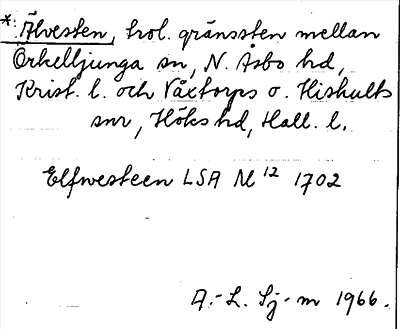 * Älvesten, trol. gränssten mellan
Örkelljunga sn, N. Åsbo hd,
Krist. l. och Våxtorps o. Hishults
snr, Höks hd, Hall. l.
Elfwesteen LSA M 12 1702
A.-L. Sj-m 1966.